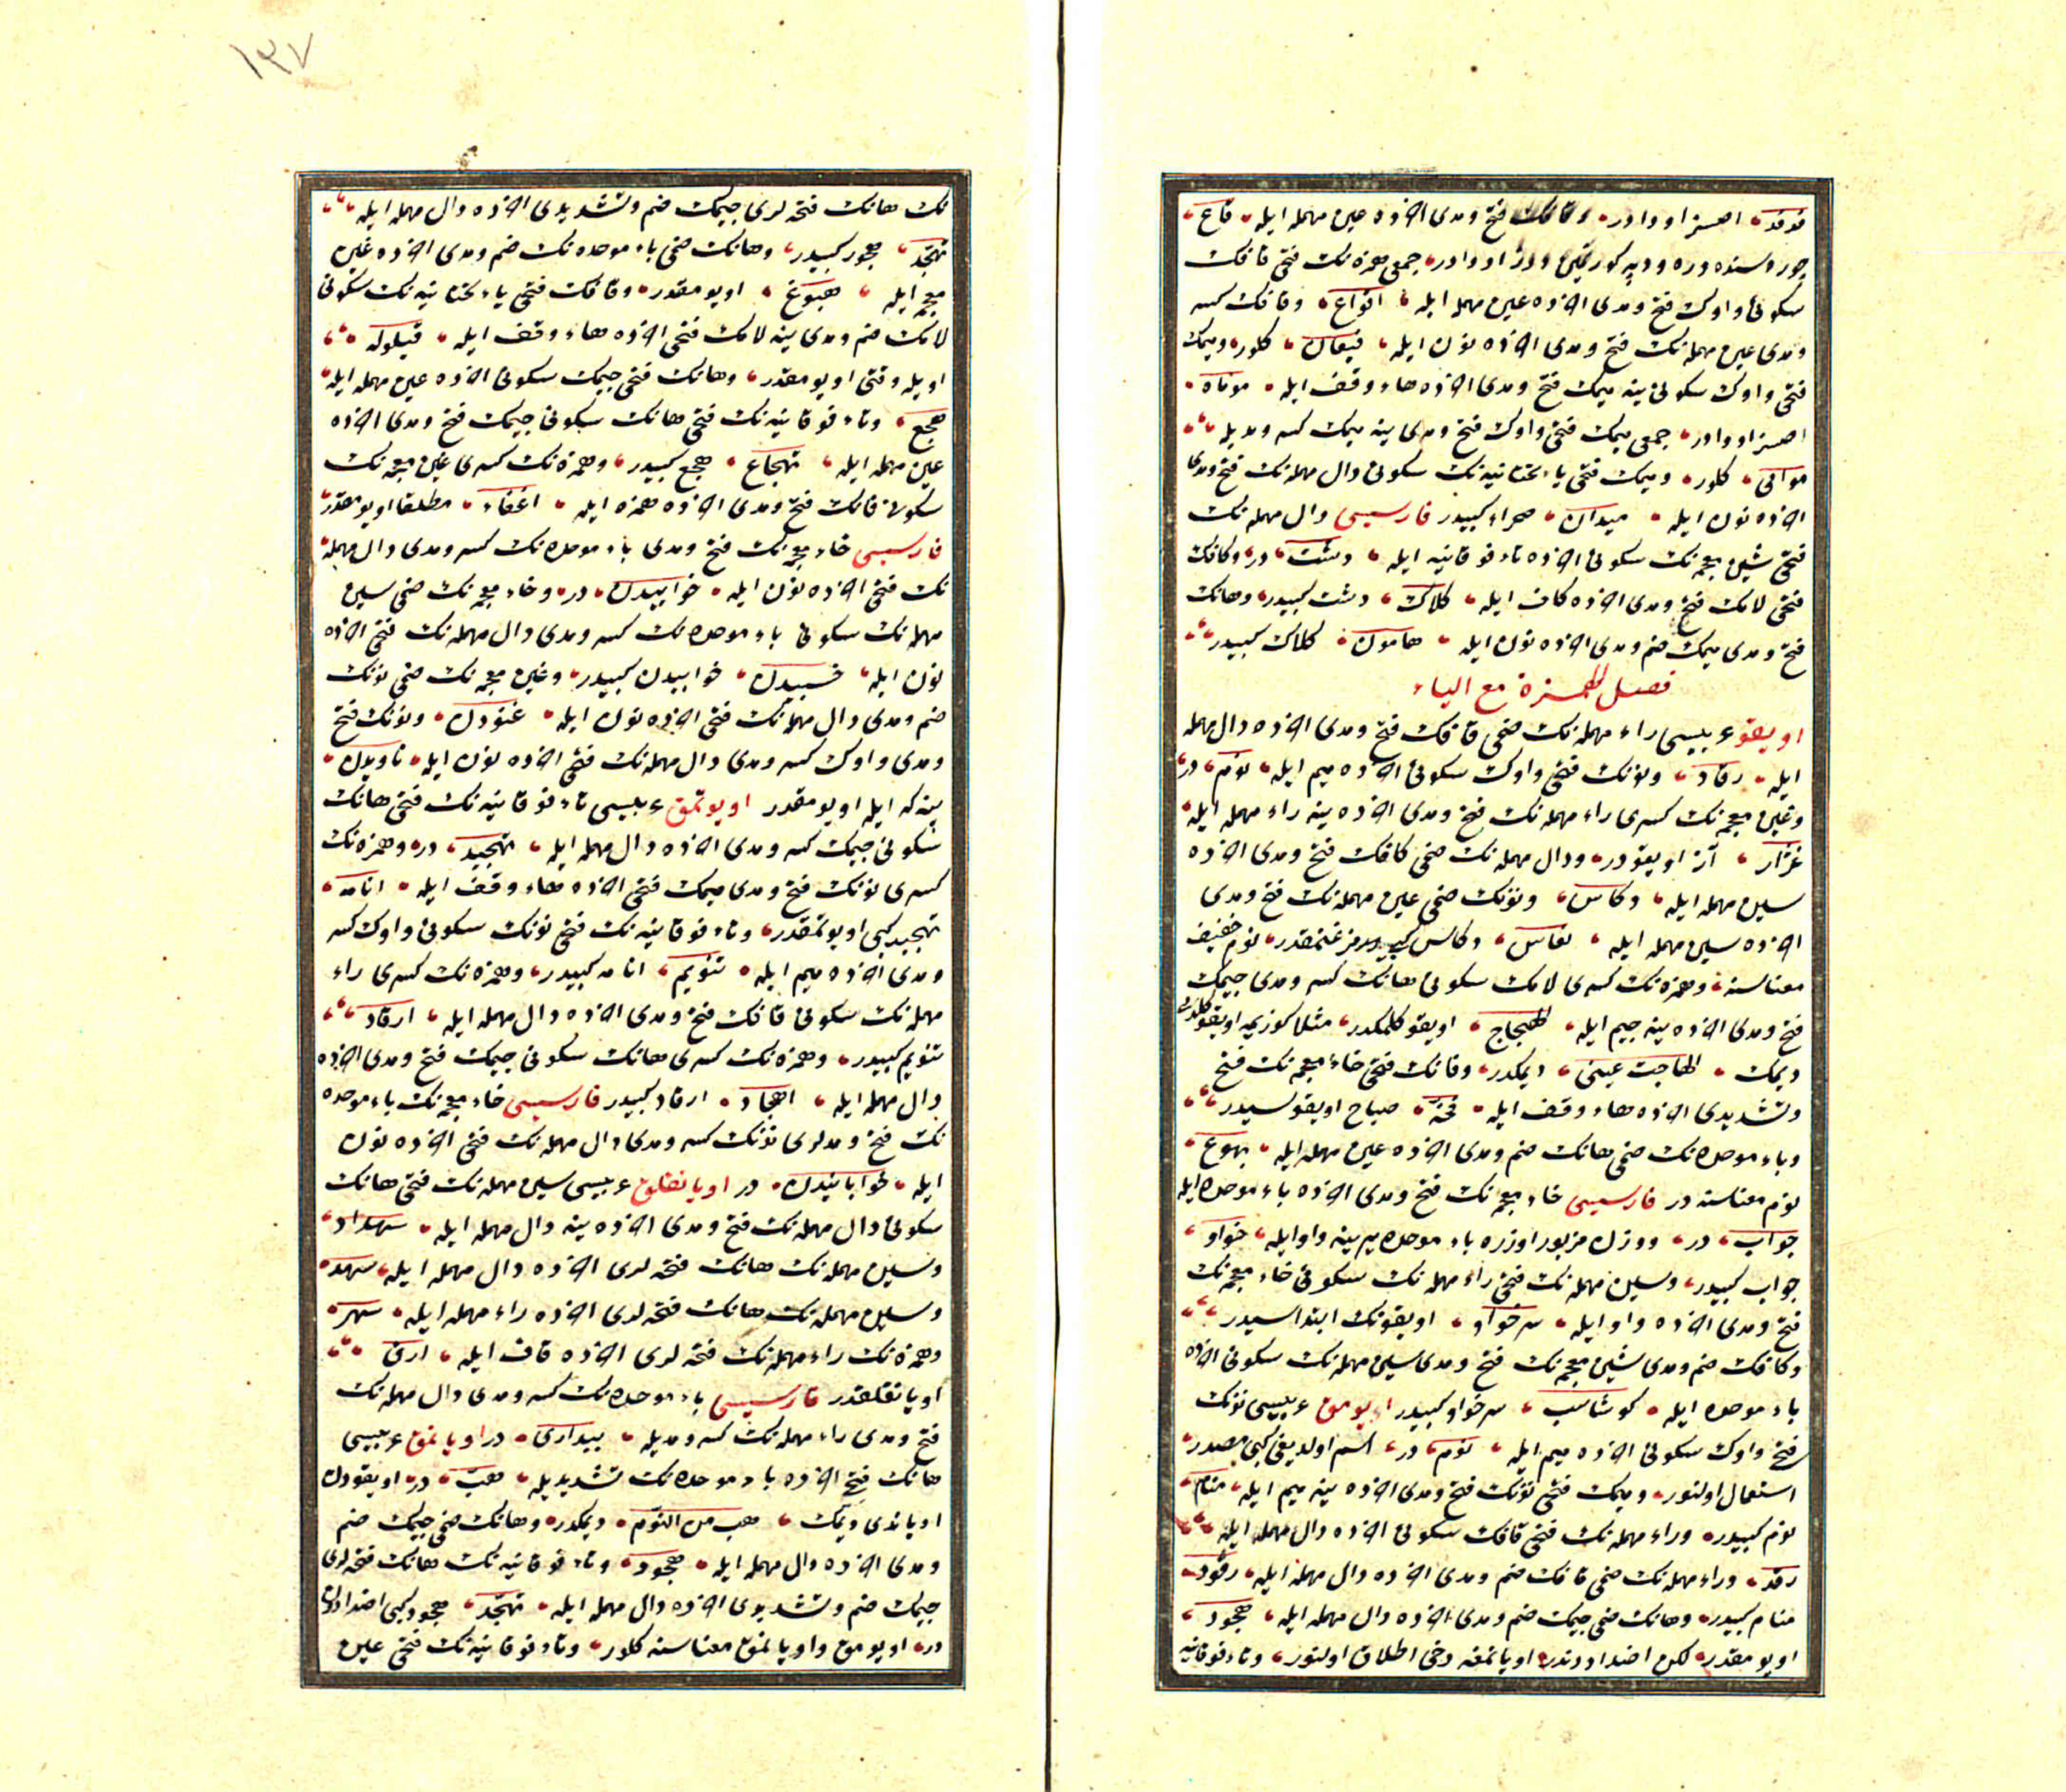 فدفد اصسز اووادر وقافك فتح ومدى اخرده عين مهمله ايله قاع
چوروسنده دره و دپه كورنمين دوز اووادر جمعى همزه نك فتحى قافك
سكونى واوك فتح ومدى اخرده عين مهمله ايله اقواع وقافك كسر
ومدى عين مهمله نك فتح ومدى اخرده نون ايله قيعان كلور وميمك
فتحى واوك سكونى ينه ميمك فتح ومدى اخرده هاء وقف ايله موماة
اصسز اووادر جمعى ميمك فتحى واوك فتح ومدى ينه ميمك كسر ومديله
موامى كلور وميمك فتحى ياء تحتانيه نك سكونى دال مهمله نك فتح ومدى
اخرده نون ايله ميدان صحراء كبيدر فارسيسى دال مهمله نك
فتحى شين معجمه نك سكونى اخرده تاء فوقانيه ايله دشت در وكافك
فتحى لامك فتح ومدى اخرده كاف ايله كلاك دشت كبيدر وهانك
فتح ومدى ميمك ضم ومدى اخرده نون ايله هامون كلاك كبيدر
فصل الهمزة مع الياء
اويقو عربيسى راء مهمله نك ضمى قافك فتح ومدى اخرده دال مهمله
ايله رقاد ونونك فتحى واوك سكونى اخرده ميم ايله نوم در
وغين معجمه نك كسرى راء مهمله نك فتح ومدى اخرده ينه راء مهمله ايله
غرار آز اويقودر ودال مهمله نك ضمى كافك فتح ومدى اخرده
سين مهمله ايله دكاس ونونك ضمى عين مهمله نك فتح ومدى
اخرده سين مهمله ايله نعاس دكاس كبيدر مزغنمقدر نوم خفيف
معناسنه وهمزه نك كسرى لامك سكونى هانك كسر ومدى جيمك
فتح ومدى اخرده ينه جيم ايله الهيجاج اويقو كلمكدر مثلا كوزيمه اويقو كلدى
ديمك الهاجت عينى ديمكدر وفانك فتحى خاء معجمه نك فتح
وتشديدى اخرده هاء وقف ايله فخة صباح اويقوسيدر
وباء موحده نك ضمى هانك ضم ومدى اخرده عين مهمله ايله بهوع
نوم معناسنه در فارسيسى خاء معجمه نك فتح ومدى اخرده باء موحده ايله
خواب در ووزن مزبور اوزره باء موحده يرينه واو ايله خواو
خواب كبيدر وسين مهمله نك فتحى راء مهمله نك سكونى خاء معجمه نك
فتح ومدى اخرده واو ايله سرخواو اويقونك ابتداسيدر
وكافك ضم ومدى شين معجمه نك فتح ومدى سين مهمله نك سكونى اخرده
باء موحده ايله كوشاسب سرخواو كبيدر اويومق عربيسى نونك
فتح واوك سكونى اخرده ميم ايله نوم در اسم اولديغى كبى مصدر
استعمال اولنور وميمك فتحى نونك فتح ومدى اخرده ينه ميم ايله منام
نوم كبيدر وراء مهمله نك فتحى قافك سكونى اخرده دال مهمله ايله
رقد وراء مهمله نك ضمى قافك ضم ومدى اخرده دال مهمله ايله رقود
منام كبيدر وهانك ضمى جيمك ضم ومدى اخرده دال مهمله ايله هجود
اويومقدر لكن اضداددندر اويانمغه دخى اطلاق اولنور وتاء فوقانيه
١٣٧
نك هانك فتحه لرى جيمك ضم وتشديدى اخرده دال مهمله ايله
تهجد هجود كبيدر وهانك ضمى باء موحده نك ضم ومدى اخرده غين
معجمه ايله هبوغ اويومقدر وقافك فتحى ياء تحتانيه نك سكونى
لامك ضم ومدى ينه لامك فتحى اخرده هاء وقف ايله قيلوله
اويله وقتى اويومقدر وهانك فتحى جيمك سكونى اخرده عين مهمله ايله
هجع وتاء فوقانيه نك فتحى هانك سكونى جيمك فتح ومدى اخرده
عين مهمله ايله تهجاع هجع كبيدر وهمزه نك كسرى غين معجمه نك
سكونى فانك فتح ومدى اخرده همزه ايله اغفاء مطلقا اويومقدر
فارسيسى خاء معجمه نك فتح ومدى باء موحده نك كسر ومدى دال مهمله
نك فتحى اخرده نون ايله خوابيدن در وخاء معجمه نك ضمى سين
مهمله نك سكونى باء موحده نك كسر ومدى دال مهمله نك فتحى اخرده
نون ايله خسبيدن خوابيدن كبيدر وغين معجمه نك ضمى نونك
ضم ومدى دال مهمله نك فتحى اخرده نون ايله غنودن ونونك فتح
ومدى واوك كسر ومدى دال مهمله نك فتحى اخرده نون ايله ناويدن
ينه كه ايله اويومقدر اويوتمق عربيسى تاء فوقانيه نك فتحى هانك
سكونى جيمك كسر ومدى اخرده دال مهمله ايله تهجيد در وهمزه نك
كسرى نونك فتح ومدى ميمك فتحى اخرده هاء وقف ايله انامه
تهجيد كبى اويوتمقدر وتاء فوقانيه نك فتحى نونك سكونى واوك كسر
ومدى اخرده ميم ايله تنويم انامه كبيدر وهمزه نك كسرى راء
مهمله نك سكونى قافك فتح ومدى اخرده دال مهمله ايله ارقاد
تنويم كبيدر وهمزه نك كسرى هانك سكونى جيمك فتح ومدى اخرده
دال مهمله ايله اهجاد ارقاد كبيدر فارسيسى خاء معجمه نك باء موحده
نك فتح ومدلرى نونك كسر ومدى دال مهمله نك فتحى اخرده نون
ايله خوابانيدن در اويانقلق عربيسى سين مهمله نك فتحى هانك
سكونى دال مهمله نك فتح ومدى اخرده ينه دال مهمله ايله سهداد
وسين مهمله نك هانك فتحه لرى اخرده دال مهمله ايله سهد
وسين مهمله نك هانك فتحه لرى اخرده راء مهمله ايله سهر
وهمزه نك راء مهمله نك فتحه لرى اخرده قاف ايله ارق
اويانقلقدر فارسيسى باء موحده نك كسر ومدى دال مهمله نك
فتح ومدى راء مهمله نك كسر ومديله بيدارى در اويانمق عربيسى
هانك فتح اخرده باء موحده نك تشديديله هب در اويقودن
اوياندى ديمك هب من النوم ديمكدر وهانك ضمى جيمك ضم
ومدى اخرده دال مهمله ايله هجود وتاء فوقانيه نك هانك فتحه لرى
جيمك ضم وتشديدى اخرده دال مهمله ايله تهجد هجود كبى اضداددن
در اويومق واويانمق معناسنه كلور وتاء فوقانيه نك فتحى عين